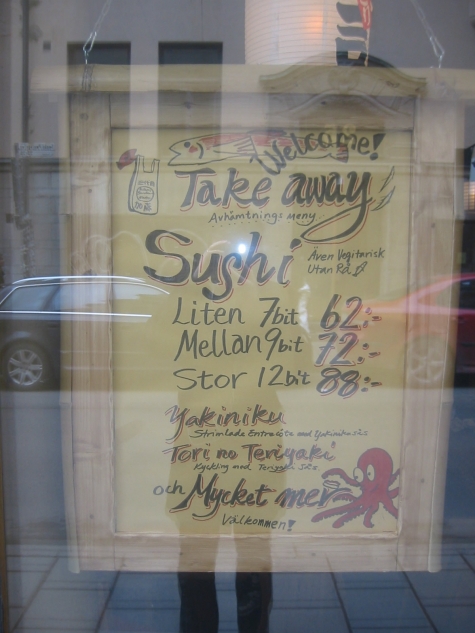 Welcome!
Take away
Avhämtnings meny
Sushi
Även Vegitarisk
Utan Rå
Liten 7bit 62:-
Mellan 9bit 72:-
Stor 12bit 88:-
Yakiniku
Strimlade Entrecôte med Yakiniku sås
Tori no Teriyaki
Kyckling med Teriyaki sås
och Mycket mer
Välkommen!